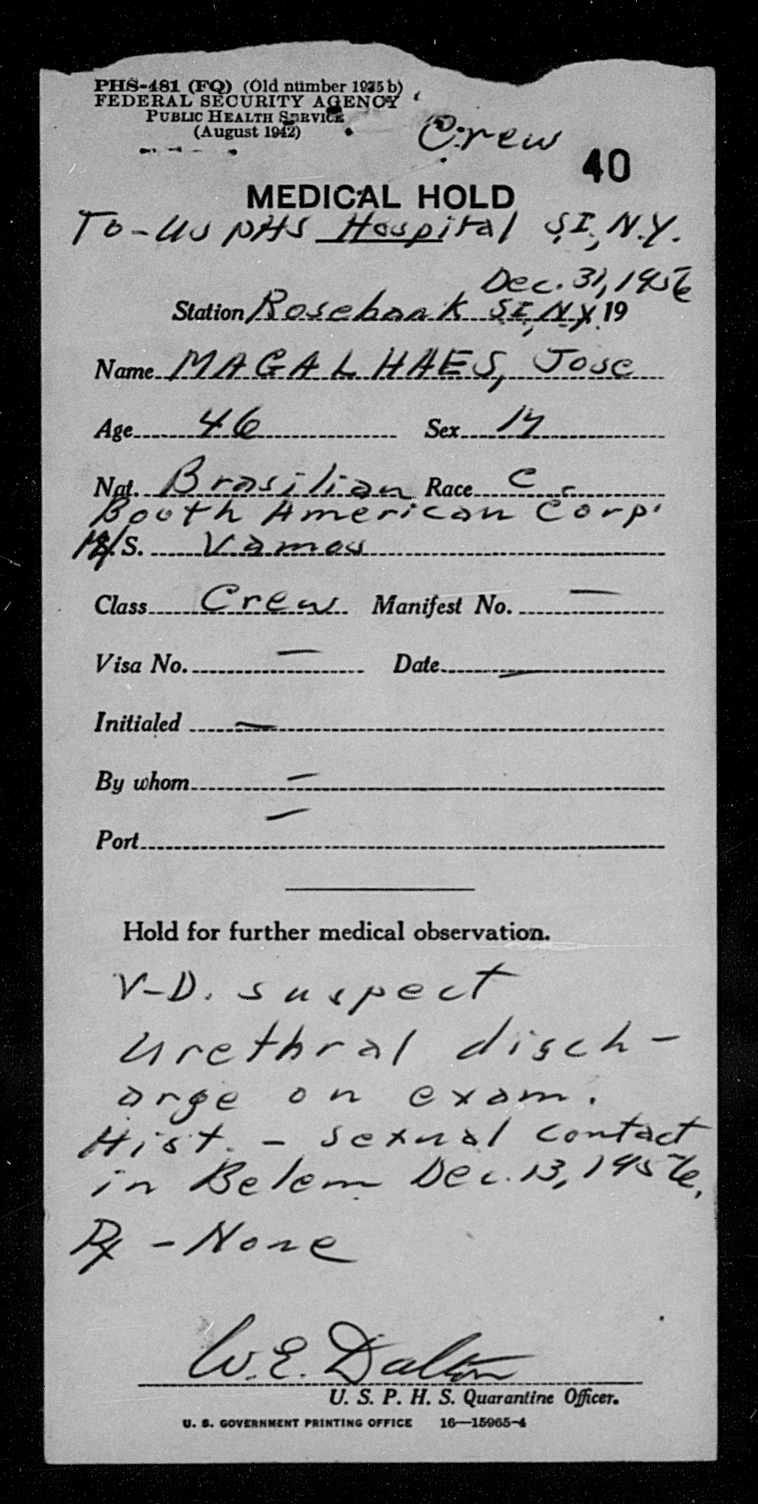 PHS-481 (FQ) (Old number 1935 b)
FEDERAL SECURITY AGENCY
PUBLIC HEALTH SERVICE
(August 1942)
Crew
40
MEDICAL HOLD
To - US PHS Hospital S.I., N.Y.
Dec. 31, 1956
Station Rosebank S.I., N.Y. 19
Name MAGALHAES, Jose
Age 46 Sex M
Nat. Brasilian Race C
Booth American Corp.
M/S. Vamos
Class Crew Manifest No. —
Visa No. — Date —
Initialed —
By whom —
Port —
Hold for further medical observation.
V-D. suspect
Urethral disch-
arge on exam.
Hist. - Sexual contact
in Belem Dec. 13, 1956.
Rx - None
W. E. Dalton
U. S. P. H. S. Quarantine Officer.
U. S. GOVERNMENT PRINTING OFFICE 16—15965-4